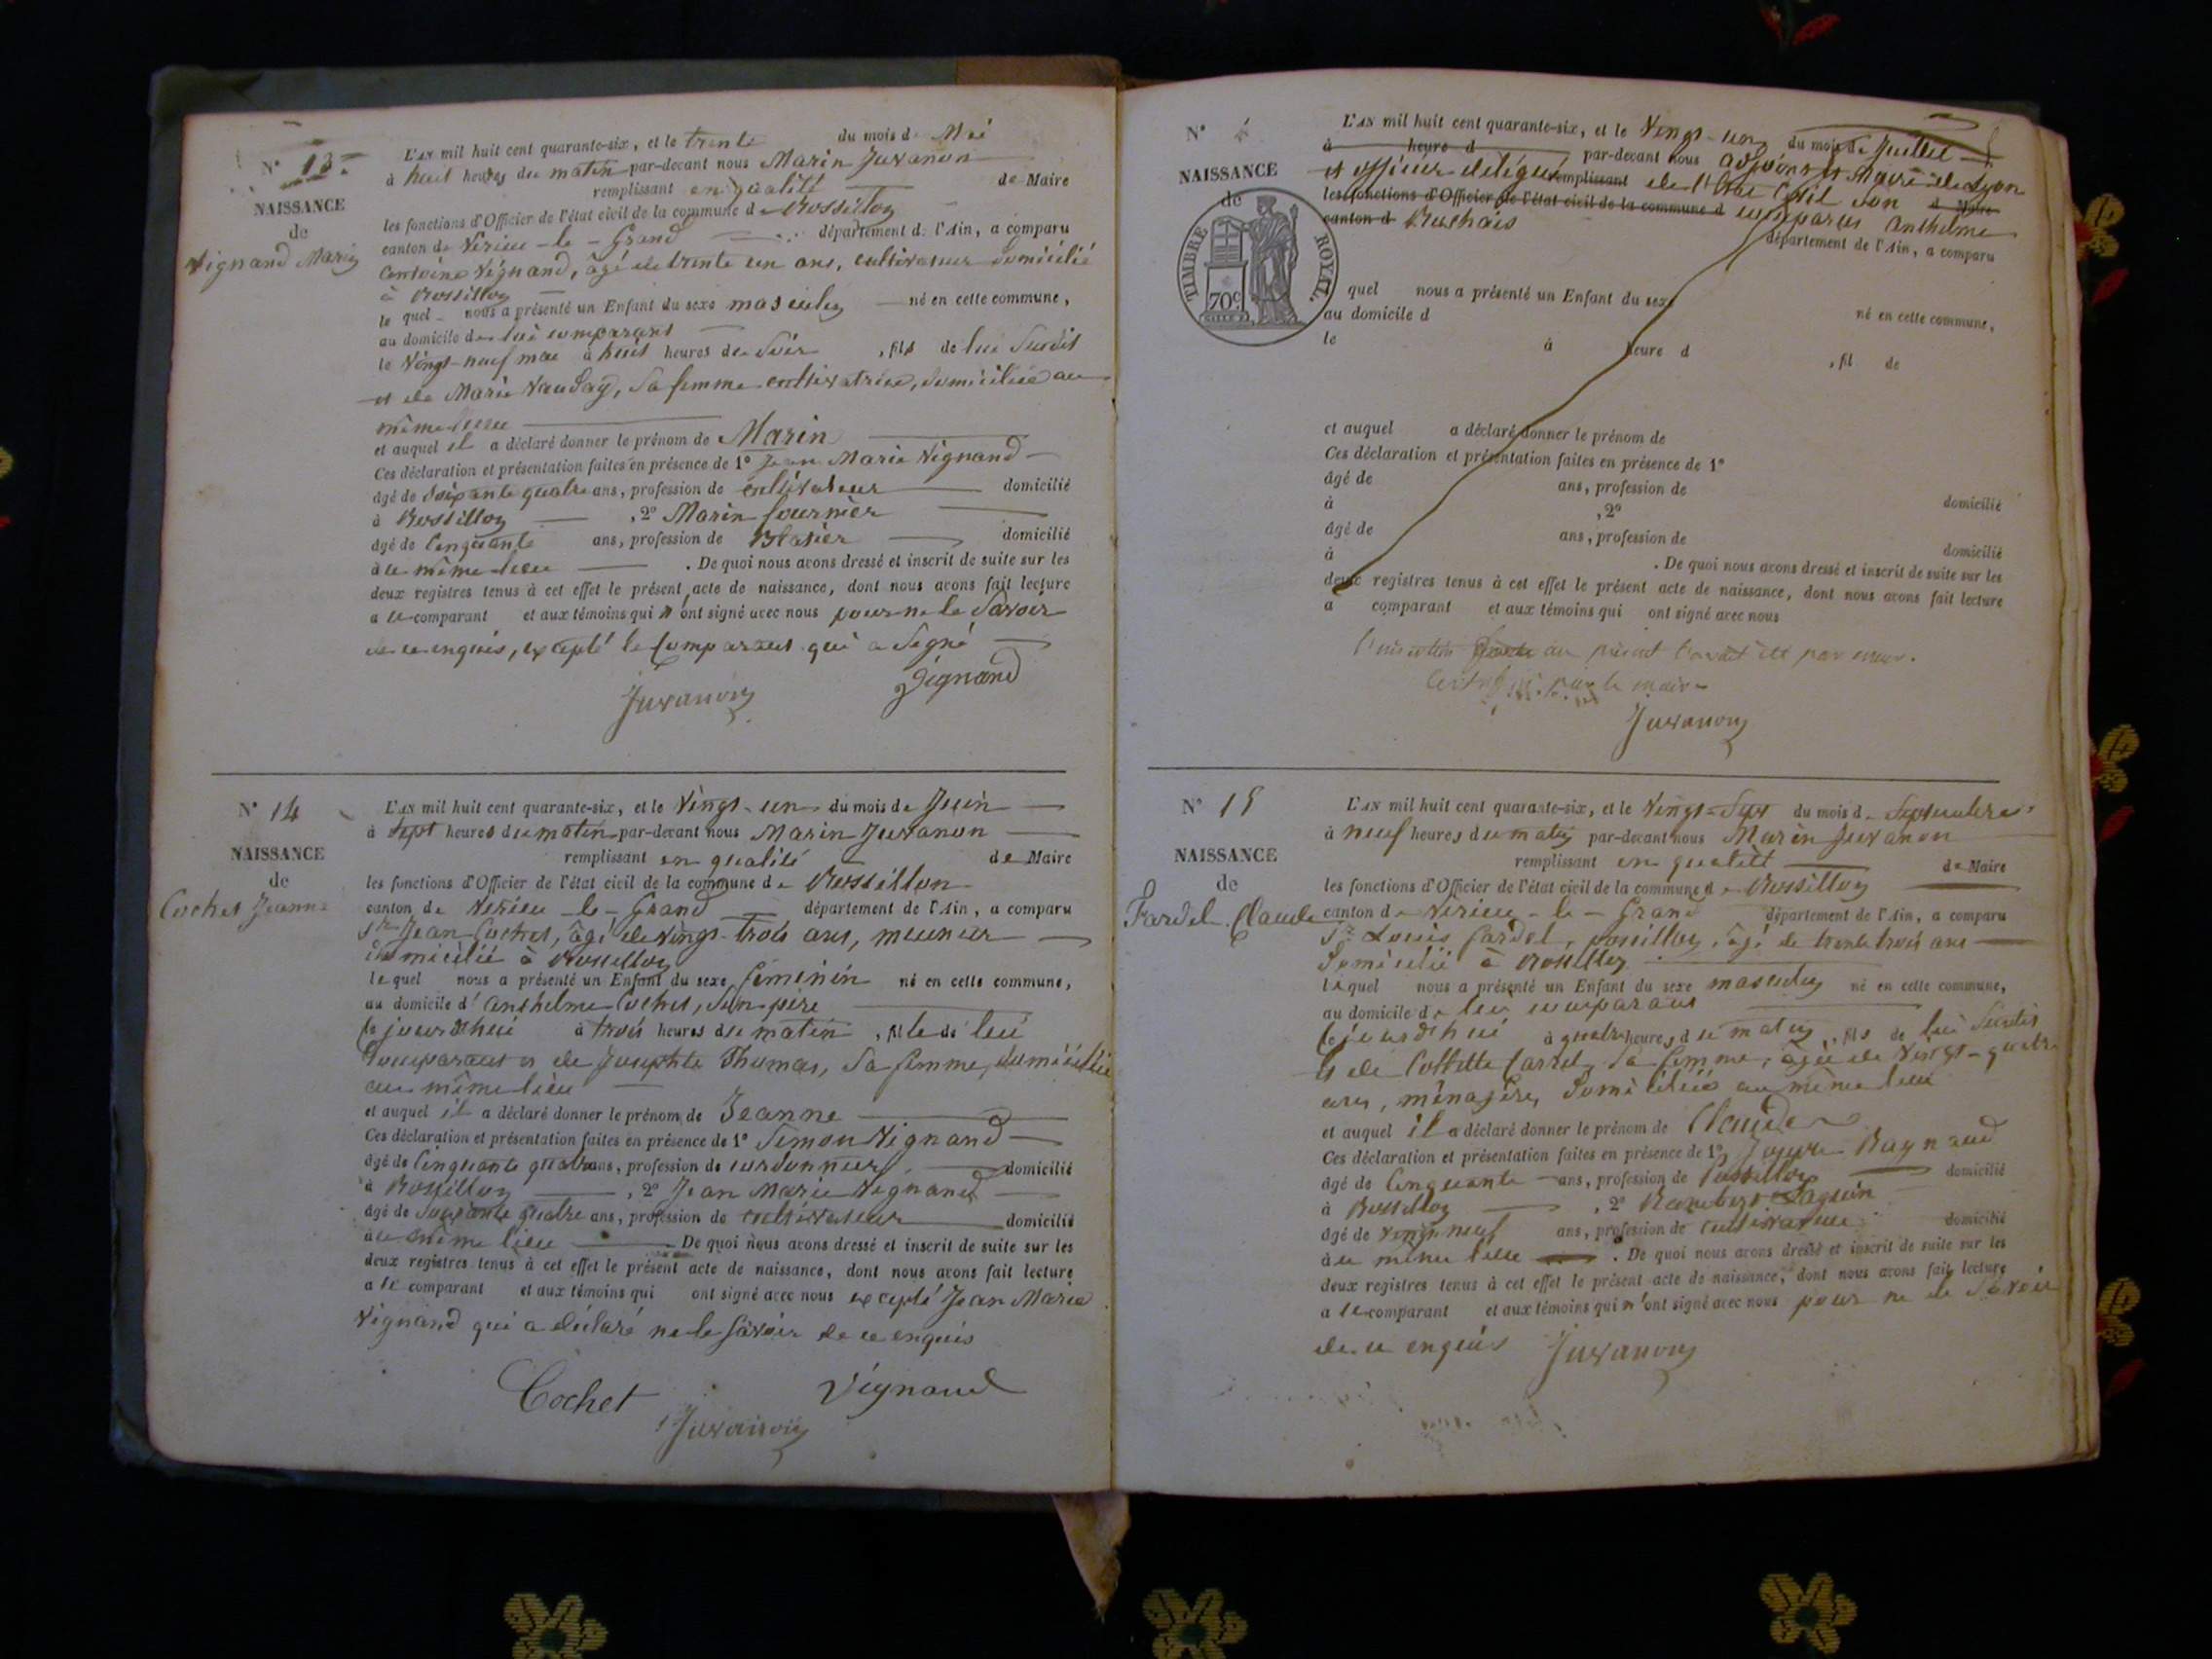 N° 13
NAISSANCE
de
Vignand Marin
L'AN mil huit cent quarante-six, et le trente du mois de Mai
à huit heures du matin par-devant nous Marin Juvanon
remplissant en qualité de Maire
les fonctions d'Officier de l'état civil de la commune de Rossillon
canton de Virieu-le-Grand département de l'Ain, a comparu
antoine Vignand, âgé de trente un ans, cultivateur domicilié
à Rossillon
le quel nous a présenté un Enfant du sexe masculin né en cette commune,
au domicile de lui comparant
le vingt-neuf mai à huit heures du Soir, fils de lui Susdit
et de Marie Vauday, Sa femme cultivatrice, domiciliée au
même lieu
et auquel il a déclaré donner le prénom de Marin
Ces déclaration et présentation faites en présence de 1° Jean Marie Vignand
âgé de Soixante quatre ans, profession de cultivateur domicilié
à Rossillon, 2° Marin fournier
âgé de Cinquante ans, profession de domicilié
à le même lieu. De quoi nous avons dressé et inscrit de suite sur les
deux registres tenus à cet effet le présent acte de naissance, dont nous avons fait lecture
a le comparant et aux témoins qui n'ont signé avec nous pour ne le Savoir
de ce enquis, excepté le Comparant qui a Signé
Vignand
Juvanon
N° 14
NAISSANCE
de
Cochet Jeanne
L'AN mil huit cent quarante-six, et le Vingt-un du mois de Juin
à Sept heures du matin par-devant nous Marin Juvanon
remplissant en qualité de Maire
les fonctions d'Officier de l'état civil de la commune de Rossillon
canton de Virieu-le-Grand département de l'Ain, a comparu
Sr Jean Cochet, âgé de vingt-trois ans, meunier
domicilié à Rossillon
le quel nous a présenté un Enfant du sexe féminin né en cette commune,
au domicile d'anthelme Cochet, Son père
Cejourdhui à trois heures du matin, fille de lui
Comparant et de Josephte Thomas, Sa femme, domiciliée
au même lieu
et auquel il a déclaré donner le prénom de Jeanne
Ces déclaration et présentation faites en présence de 1° Simon Vignand
âgé de Cinquante quatre ans, profession de cordonnier domicilié
à Rossillon, 2° Jean Marie Vignand
âgé de Soixante quatre ans, profession de cultivateur domicilié
à le même lieu. De quoi nous avons dressé et inscrit de suite sur les
deux registres tenus à cet effet le présent acte de naissance, dont nous avons fait lecture
a le comparant et aux témoins qui ont signé avec nous excepté Jean Marie
Vignand qui a déclaré ne le Savoir de ce enquis
Cochet Vignand
Juvanon
N°
NAISSANCE
de
TIMBRE ROYAL.
70c
L'AN mil huit cent quarante-six, et le Vingt-un du mois de Juillet
à heure d par-devant nous adjoint Maire de Lyon
et officier délégué remplissant de l'Etat Civil Son d Maire
les fonctions d'Officier de l'état civil de la commune d comparu anthelme
canton d Ruchais
département de l'Ain, a comparu
quel nous a présenté un Enfant du sexe
au domicile d né en cette commune,
le à heure d, fil de
et auquel a déclaré donner le prénom de
Ces déclaration et présentation faites en présence de 1°
âgé de ans, profession de
à, 2° domicilié
âgé de ans, profession de
à domicilié
. De quoi nous avons dressé et inscrit de suite sur les
deux registres tenus à cet effet le présent acte de naissance, dont nous avons fait lecture
a comparant et aux témoins qui ont signé avec nous
au présent par erreur.
le maire
Juvanon
N° 15
NAISSANCE
de
Fardel Claude
L'AN mil huit cent quarante-six, et le Vingt-Sept du mois de Septembre
à neuf heures du matin par-devant nous Marin Juvanon
remplissant en qualité de Maire
les fonctions d'Officier de l'état civil de la commune de Rossillon
canton de Virieu-le-Grand département de l'Ain, a comparu
Sr Louis fardel, âgé de trente trois ans
Domicilié à Rossillon
lequel nous a présenté un Enfant du sexe masculin né en cette commune,
au domicile de lui comparant
Cejourdhui à quatre heures du matin, fils de lui Susdit
et de Collette Carrel, Sa femme, âgée de Vingt-quatre
ans, ménagère, Domiciliée au même lieu
et auquel il a déclaré donner le prénom de Claude
Ces déclaration et présentation faites en présence de 1° Joseph Raynaud
âgé de Cinquante ans, profession de domicilié
à Rossillon, 2° Rambert
âgé de vingt neuf ans, profession de cultivateur domicilié
à le même lieu. De quoi nous avons dressé et inscrit de suite sur les
deux registres tenus à cet effet le présent acte de naissance, dont nous avons fait lecture
a le comparant et aux témoins qui n'ont signé avec nous pour ne le Savoir
de ce enquis Juvanon